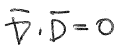 ∇̅ · D̅ = 0